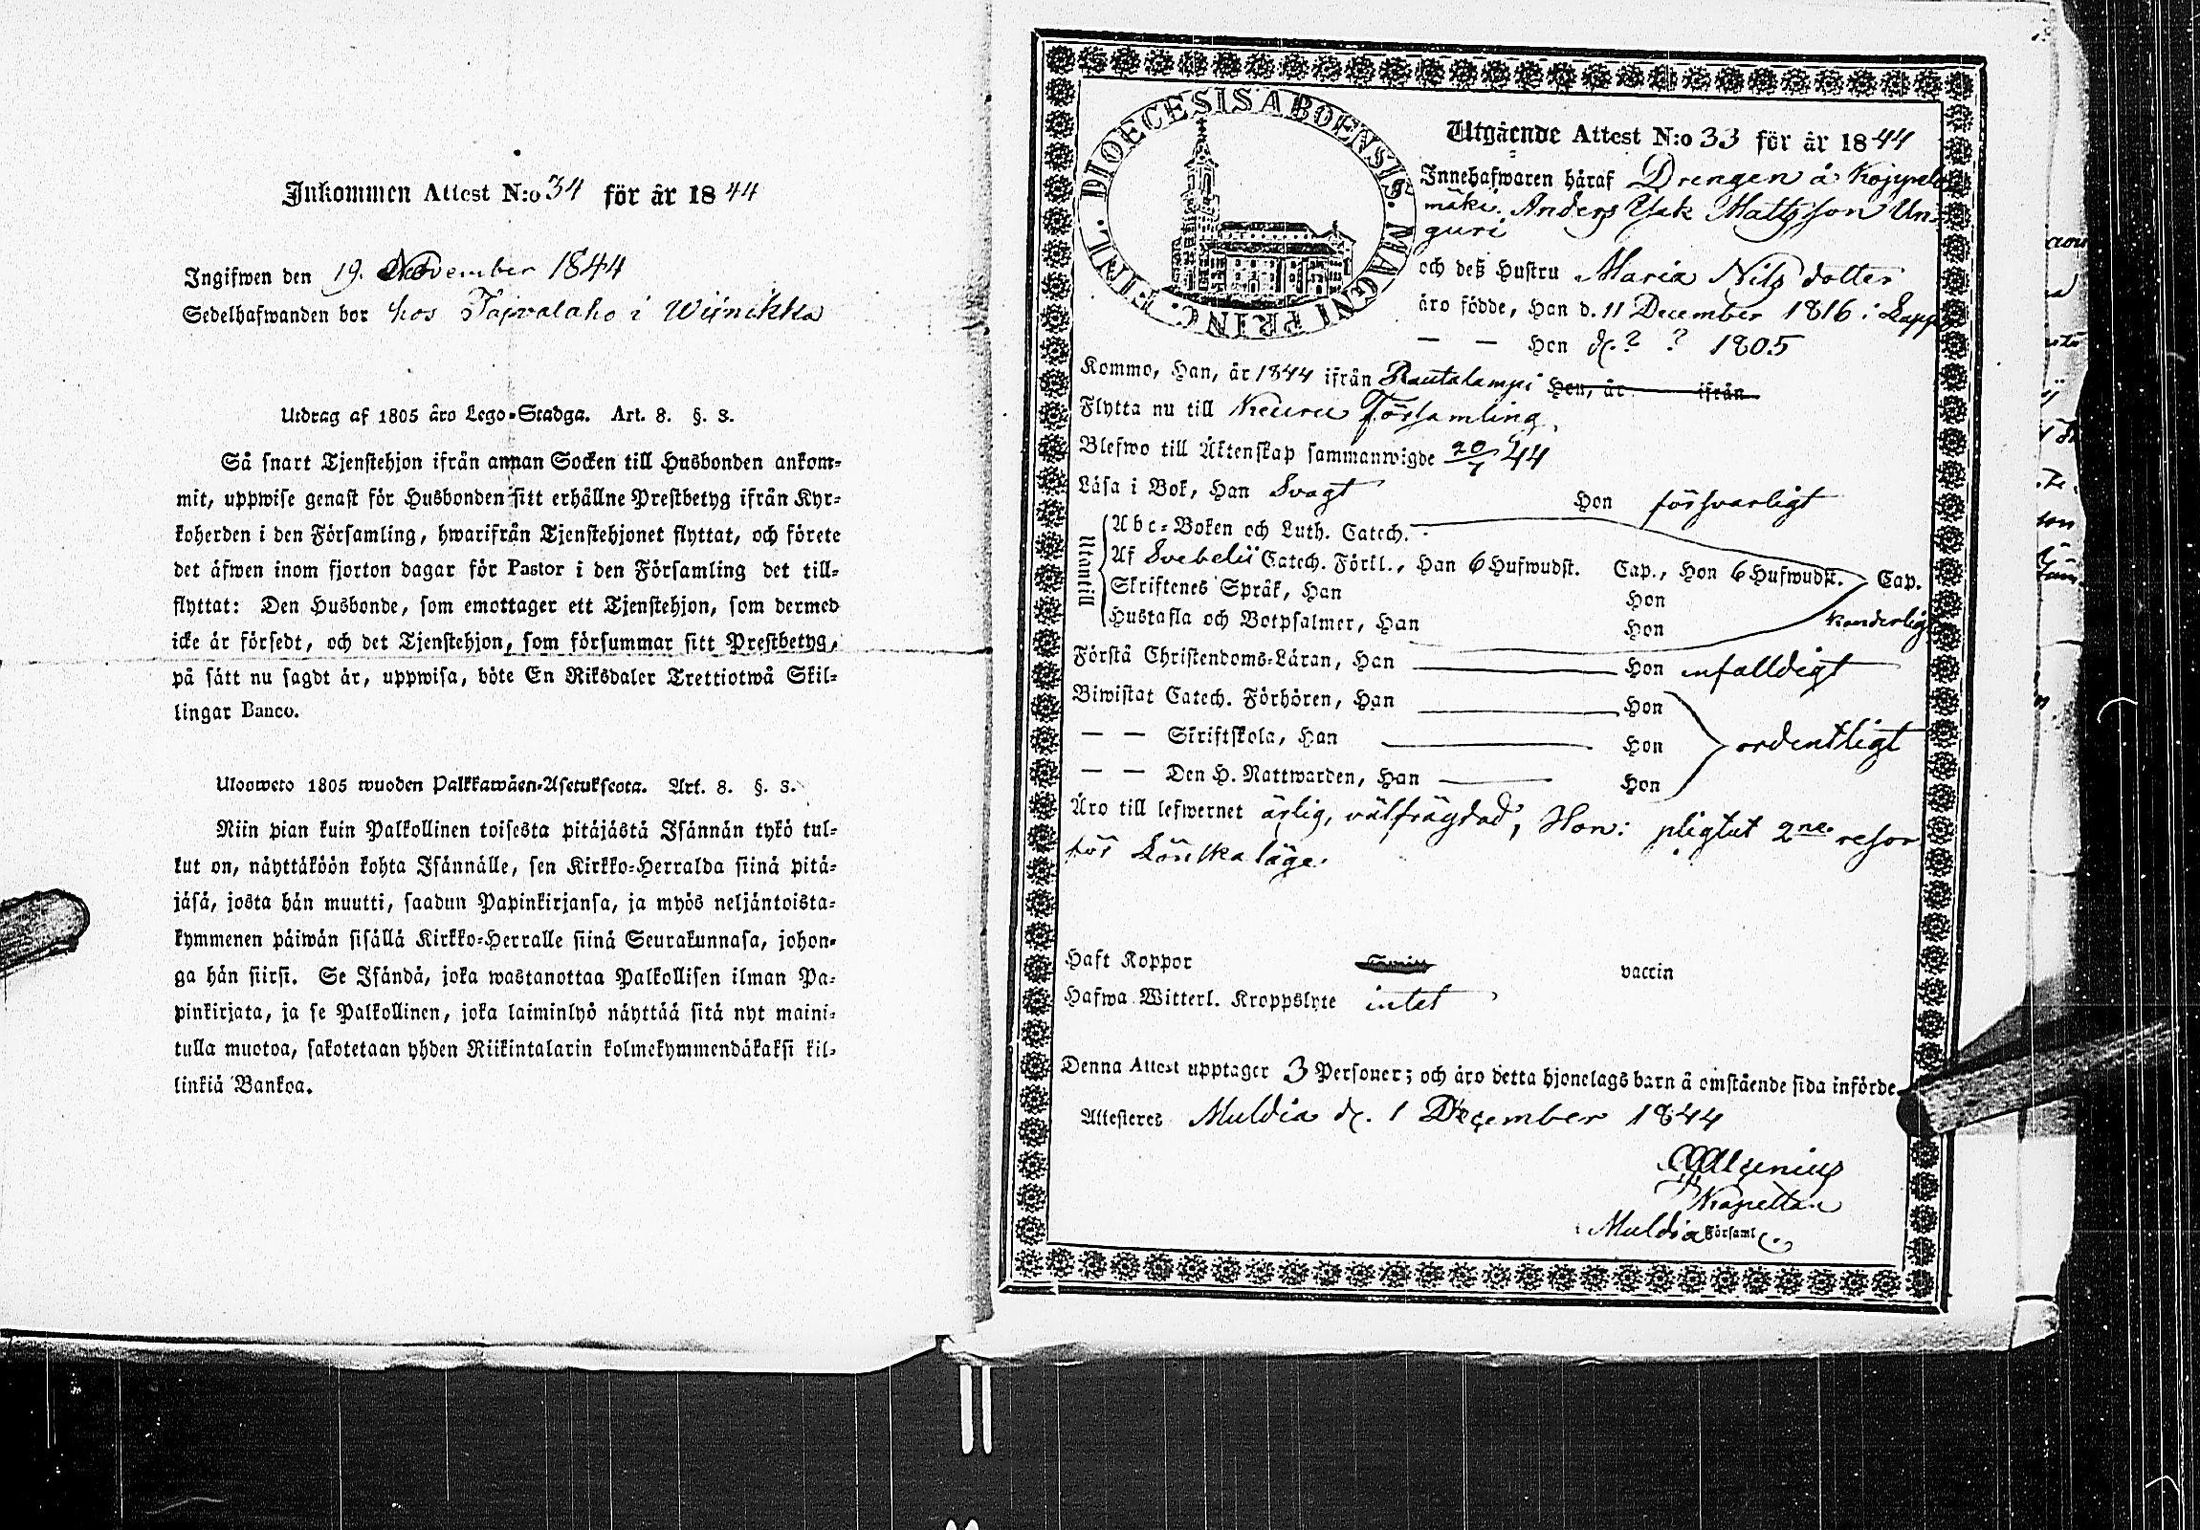 Inkommen Attest N:o 34 för år 1844
Ingifwen den 19. November 1844
Sedelhafwanden bor hos Tarvalaho i Wijnikka
Utdrag af 1805 åro Lego-Stadga. Art. 8. §. 3.
Så snart Tjenstehjon ifrån annan Socken till Husbonden ankom-
mit, uppwise genast för Husbonden sitt erhållne Prestbetyg ifrån Kyr-
koherden i den Församling, hwarifrån Tjenstehjonet flyttat, och förete
det äfwen inom fjorton dagar för Pastor i den Församling det till-
flyttat: Den Husbonde, som emottager ett Tjenstehjon, som dermed
icke är försedt, och det Tjenstehjon, som försummar sitt Prestbetyg,
på sätt nu sagdt är, uppwisa, böte En Riksdaler Trettiotwå Skil-
lingar Banco.
Ulosweto 1805 wuoden Palkkawäen-Asetuksesta. Art. 8. §. 3.
Niin pian kuin Palkollinen toisesta pitäjästä Isännän tykö tul-
lut on, näyttäköön kohta Isännälle, sen Kirkko-Herralda siinä pitä-
jäsä, josta hän muutti, saadun Papinkirjansa, ja myös neljäntoista-
kymmenen päiwän sisällä Kirkko-Herralle siinä Seurakunnasa, johon-
ga hän siirsi. Se Isändä, joka wastanottaa Palkollisen ilman Pa-
pinkirjata, ja se Palkollinen, joka laiminlyö näyttää sitä nyt maini-
tulla muotoa, sakotetaan yhden Riikintalarin kolmekymmendäkaksi kil-
linkiä Bankoa.
DIOECESIS ABOENSIS. MAGNI PRINC. FINL.
Utgående Attest N:o 33 för år 1844
Innehafwaren häraf Drengen å Koppelo
mäki. Anders Isak Mattsson Un-
guri
och deß Hustru Maria Nils dotter
äro födde, Han d. 11 December 1816 i Lapp
— — Hon d. ? ? 1805
Kommo, Han, år 1844 ifrån Rautalampi Hon, år ifrån
Flytta nu till Keuru Församling.
Blefwo till Äktenskap sammanwigde 20/7 44
Läsa i Bok, Han Svagt Hon försvarligt
Utantill
Abc-Boken och Luth. Catech.
Af Svebelii Catech. Förkl., Han 6 Hufwudst. Cap., Hon 6 Hufwudst. Cap.
Skriftenes Språk, Han Hon
Hustafla och Botpsalmer, Han Hon
Förstå Christendoms-Läran, Han Hon enfalldigt
Biwistat Catech. Förhören, Han Hon
— — Skriftskola, Han Hon ordentligt
— — Den H. Nattwarden, Han Hon
Äro till lefwernet ärlig, välfrägdad, Hon: pligtat 2ne resor
för Lönskaläge.
Haft Koppor vaccin
Hafwa Witterl. Kroppslyte intet
Denna Attest upptager 3 Personer; och äro detta hjonelags barn å omstående sida införde
Attesteres Muldia d. 1 December 1844
Kapellan
i Muldia Församl.